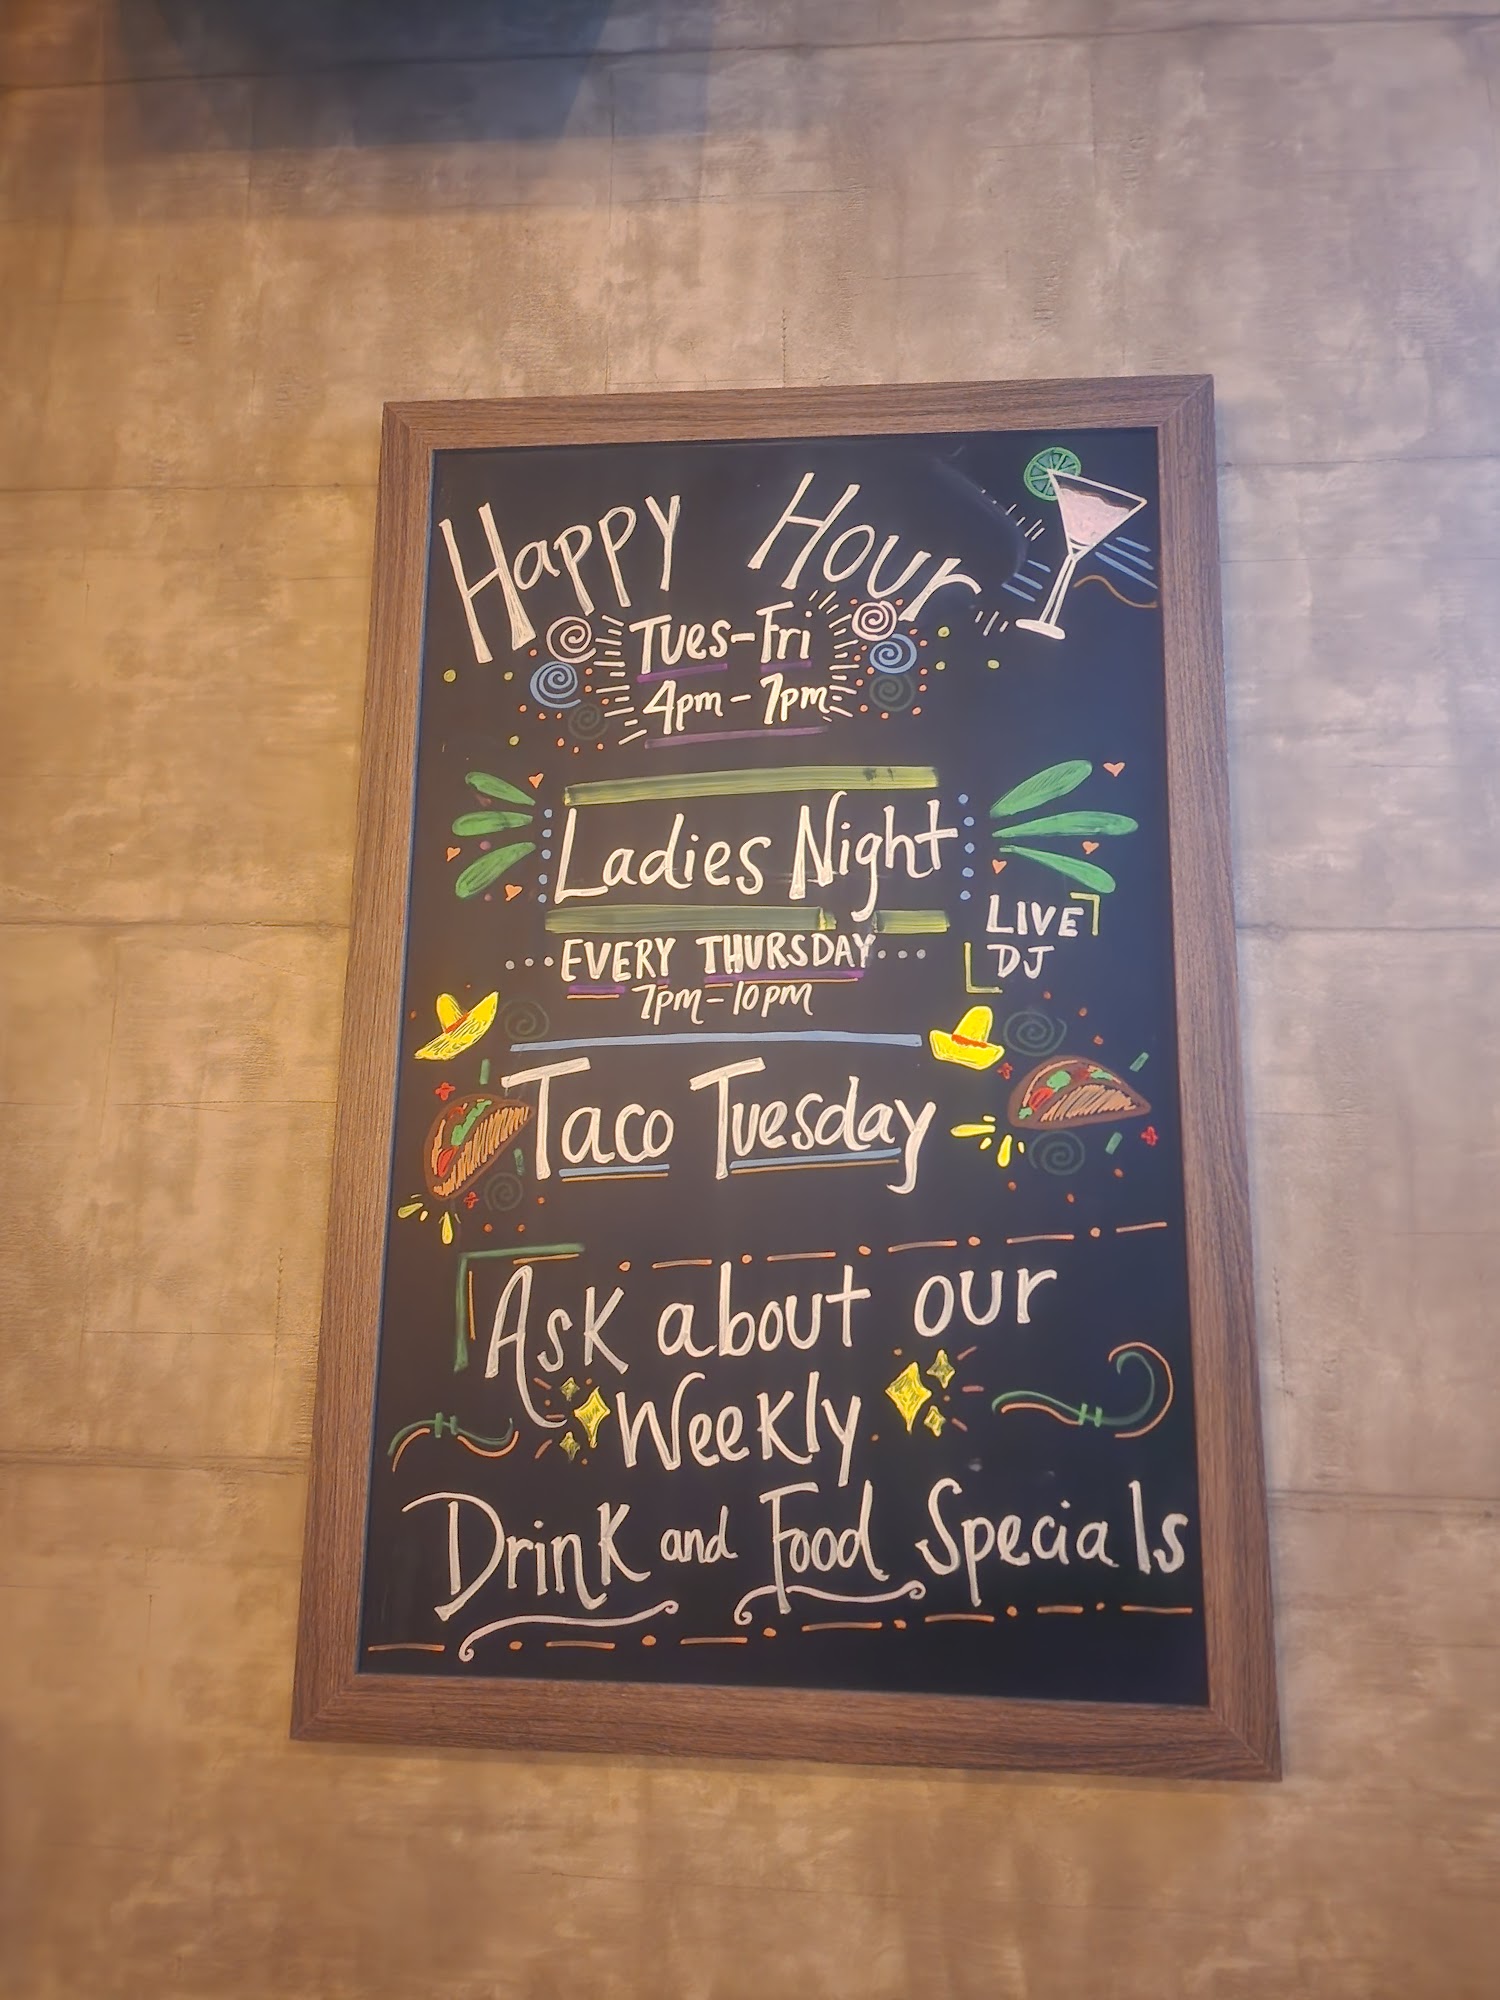 Happy Hour
Tues-Fri
4pm - 7pm
Ladies Night
EVERY THURSDAY
7pm-10pm
LIVE
DJ
Taco Tuesday
Ask about our
Weekly
Drink and Food Specials